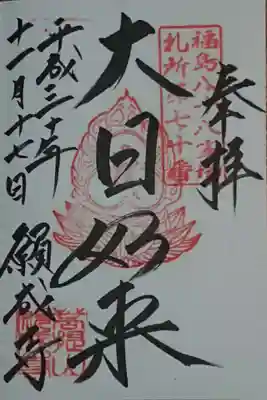 奉拝
福島八十八ヶ所霊場
札所第七十番
大日如来
平成三十年
十一月十七日
願成寺